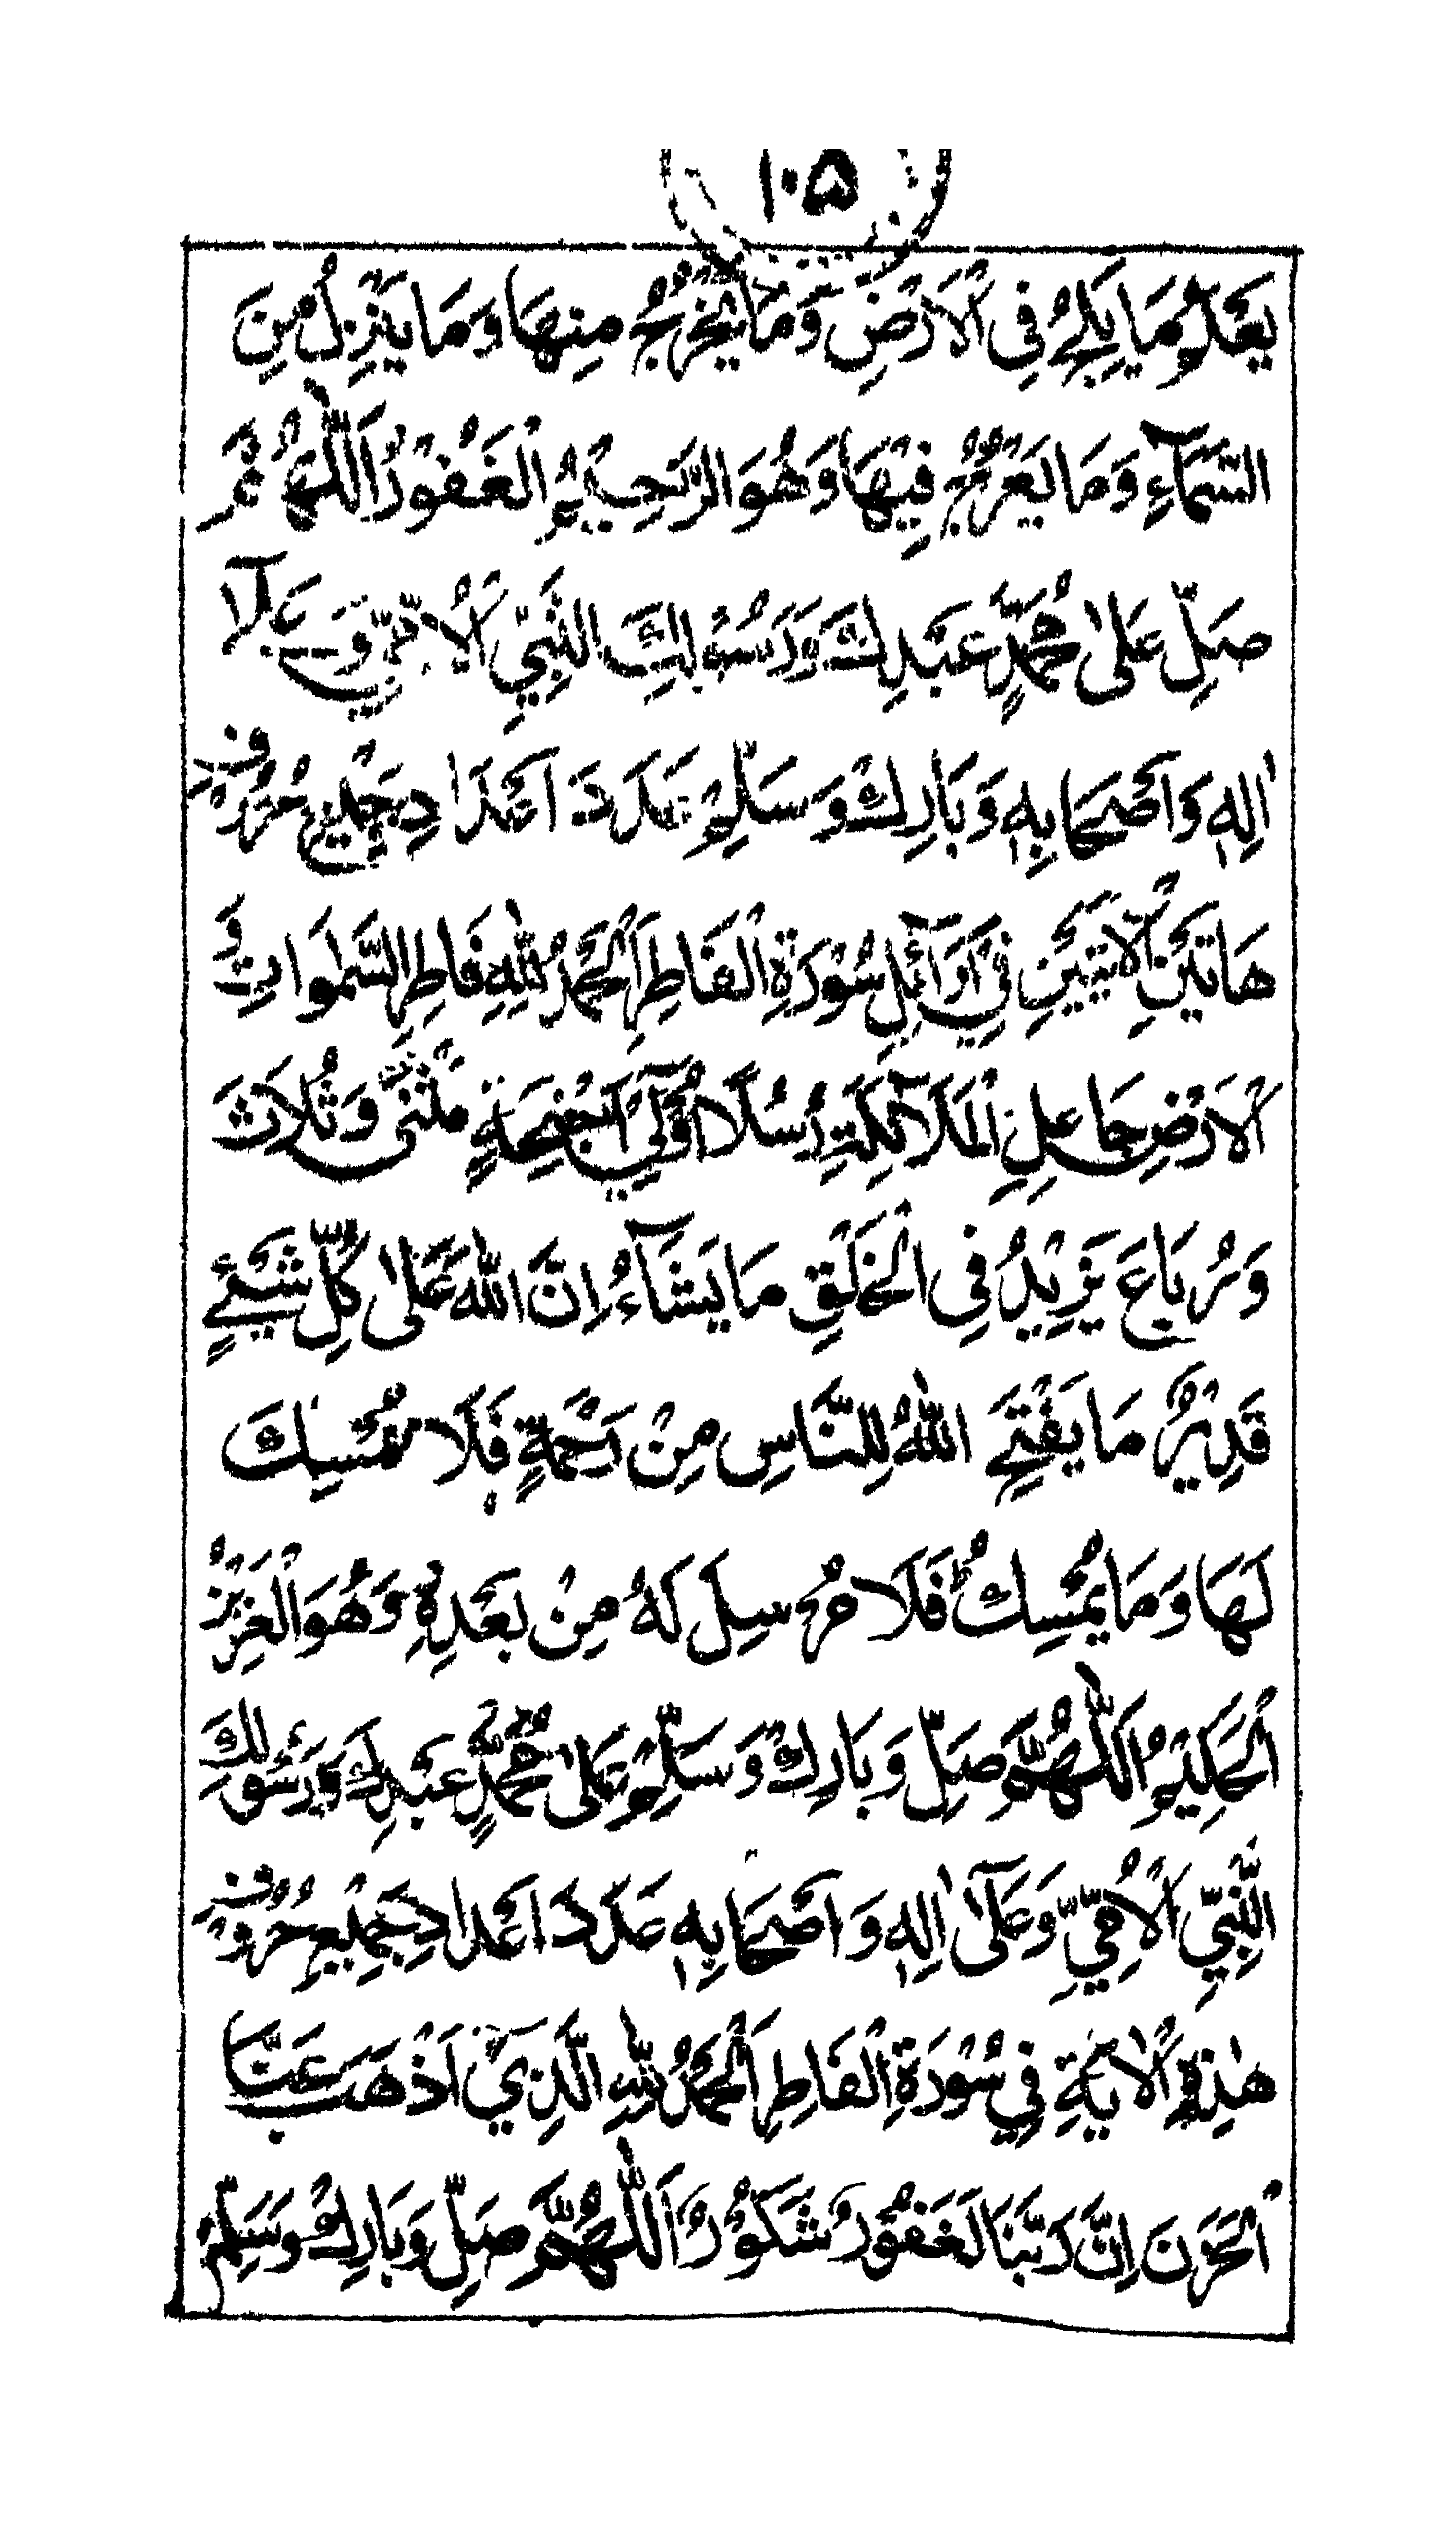 ١٠۵
يَعْلَمُ مَا يَلِجُ فِى الْاَرْضِ وَمَا يَخْرُجُ مِنْهَا وَمَا يَنْزِلُ مِنَ
السَّمَآءِ وَمَا يَعْرُجُ فِيْهَا وَهُوَ الرَّحِيْمُ الْغَفُوْرُ اَللّٰهُمَّ
صَلِّ عَلٰى مُحَمَّدٍ عَبْدِكَ وَرَسُوْلِكَ النَّبِيِّ الْاُمِّيِّ وَعَلٰٓى
اٰلِهٖ وَاَصْحَابِهٖ وَبَارِكْ وَسَلِّمْ عَدَدَ اَعْدَادِ جَمِيْعِ حُرُوْفِ
هَاتَيْنِ الْاٰيَتَيْنِ فِيْ اَوَآئِلِ سُوْرَةِ الْفَاطِرِ اَلْحَمْدُ لِلّٰهِ فَاطِرِ السَّمٰوَاتِ وَ
الْاَرْضِ جَاعِلِ الْمَلَآئِكَةِ رُسُلًا اُولِيْٓ اَجْنِحَةٍ مَّثْنٰى وَثُلَاثَ
وَرُبَاعَ يَزِيْدُ فِى الْخَلْقِ مَا يَشَآءُ اِنَّ اللّٰهَ عَلٰى كُلِّ شَيْءٍ
قَدِيْرٌ مَا يَفْتَحِ اللّٰهُ لِلنَّاسِ مِنْ رَحْمَةٍ فَلَا مُمْسِكَ
لَهَا وَمَا يُمْسِكْ فَلَا مُرْسِلَ لَهُ مِنْ بَعْدِهٖ وَهُوَ الْعَزِيْزُ
الْحَكِيْمُ اَللّٰهُمَّ صَلِّ وَبَارِكْ وَسَلِّمْ عَلٰى مُحَمَّدٍ عَبْدِكَ وَرَسُوْلِكَ
النَّبِيِّ الْاُمِّيِّ وَعَلٰٓى اٰلِهٖ وَاَصْحَابِهٖ عَدَدَ اَعْدَادِ جَمِيْعِ حُرُوْفِ
هٰذِهِ الْاٰيَةِ فِيْ سُوْرَةِ الْفَاطِرِ اَلْحَمْدُ لِلّٰهِ الَّذِيْٓ اَذْهَبَ عَنَّا
الْحَزَنَ اِنَّ رَبَّنَا لَغَفُوْرٌ شَكُوْرٌ اَللّٰهُمَّ صَلِّ وَبَارِكْ وَسَلِّمْ